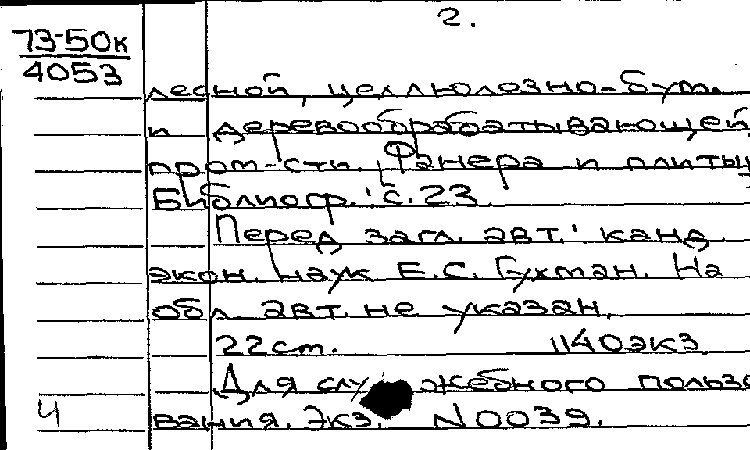 2.
73-50к
4053
лесной, целлюлозно-бум.
и деревообрабатывающей
пром-сти. Фанера и плиты
Библиогр.: с. 23
Перед загл. авт.: канд.
экон. наук Е.С. Гухман. На
обл. авт. не указан.
22 см. 1140 экз.
Для служебного пользо
4 вания. Экз. N 0039.